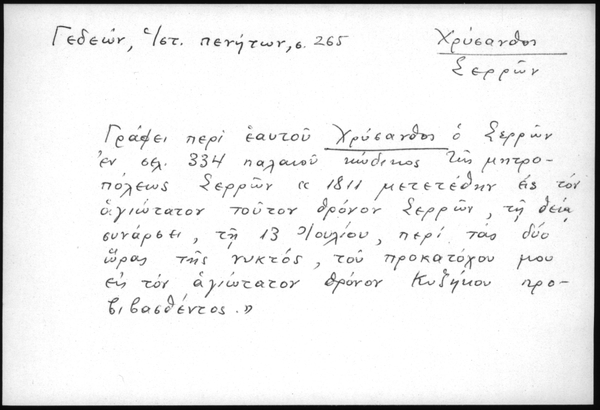 Γεδεών, Ἱστ. πενήτων, σ. 265
Χρύσανθος
Σερρῶν
Γράφει περὶ ἑαυτοῦ Χρύσανθος ὁ Σερρῶν
ἐν σελ. 334 παλαιοῦ κώδικος τῆς μητρο-
πόλεως Σερρῶν « 1811 μετετέθην εἰς τὸν
ἁγιώτατον τοῦτον θρόνον Σερρῶν, τῇ θείᾳ
συνάρσει, τῇ 13 Ἰουλίου, περὶ τὰς δύο
ὥρας τῆς νυκτός, τοῦ προκατόχου μου
εἰς τὸν ἁγιώτατον θρόνον Κυζίκου προ-
βιβασθέντος. »